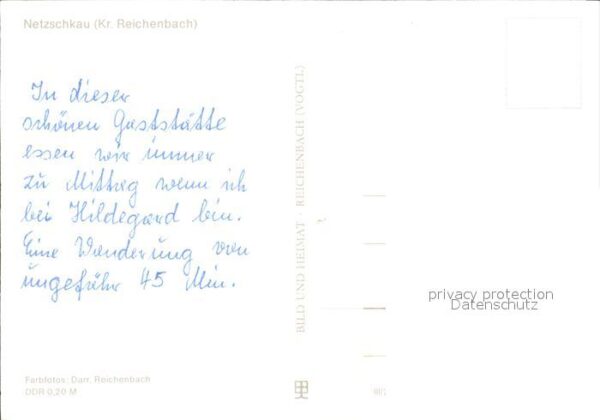 Netzschkau (Kr. Reichenbach)
In dieser
schönen Gaststätte
essen wir immer
zu Mittag wenn ich
bei Hildegard bin.
Eine Wanderung von
ungefähr 45 Min.
BILD UND HEIMAT · REICHENBACH (VOGTL)
privacy protection
Datenschutz
Farbfotos: Darr, Reichenbach
DDR 0,20 M